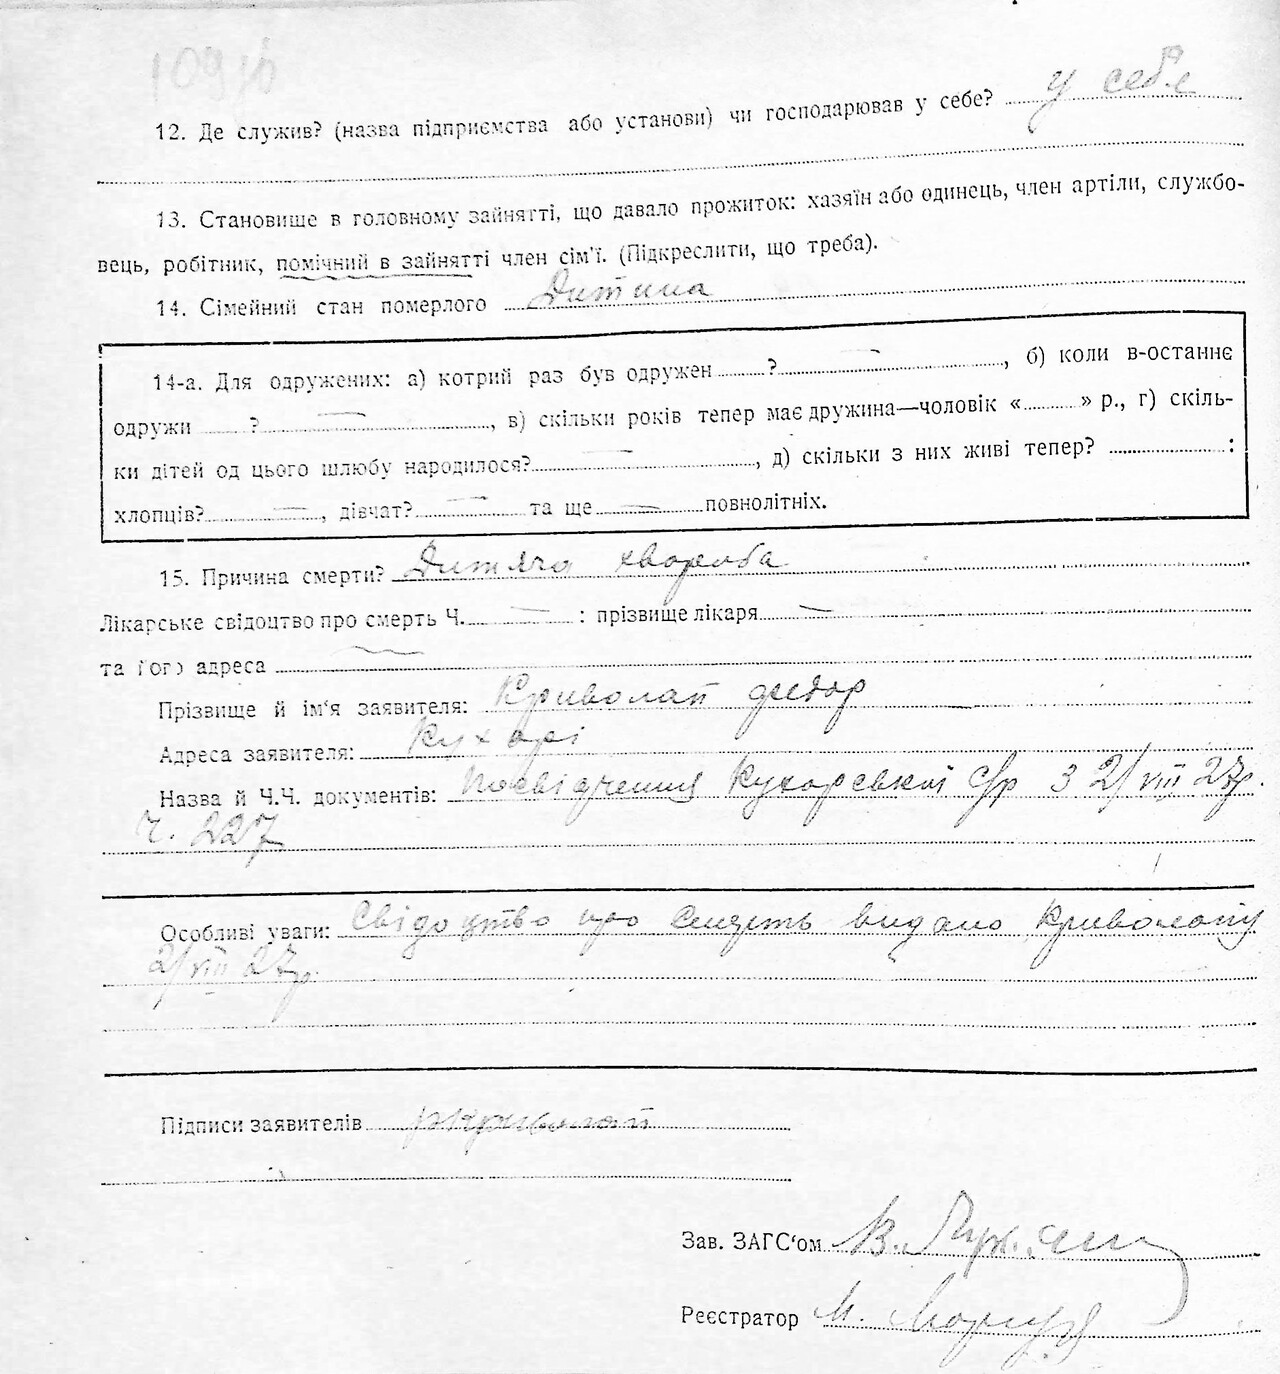 12. Де служив? (назва підприємства або установи) чи господарював у себе? у себе
13. Становище в головному зайнятті, що давало прожиток: хазяїн або одинець, член артіли, службо-
вець, робітник, помічний в зайнятті член сім'ї. (Підкреслити, що треба).
14. Сімейний стан померлого Дитина
14-а. Для одружених: а) котрий раз був одружен ? —, б) коли в-останнє
одружи ? —, в) скільки років тепер має дружина—чоловік « » р., г) скіль-
ки дітей од цього шлюбу народилося? —, д) скільки з них живі тепер? :
хлопців? —, дівчат? — та ще — повнолітніх.
15. Причина смерти? Дитяча хвороба
Лікарське свідоцтво про смерть Ч. — : прізвище лікаря —
та його адреса —
Прізвище й ім'я заявителя: Криволап Федор
Адреса заявителя: Кухарі
Назва й Ч.Ч. документів: Посвідчення Кухарської с/р з 2/VIII 27р.
Ч. 227
Особливі уваги: Свідоцтво про смерть видано Криволапу
2/VIII 27р.
Підписи заявителів Криволап
Зав. ЗАГС'ом В.
Реєстратор М.